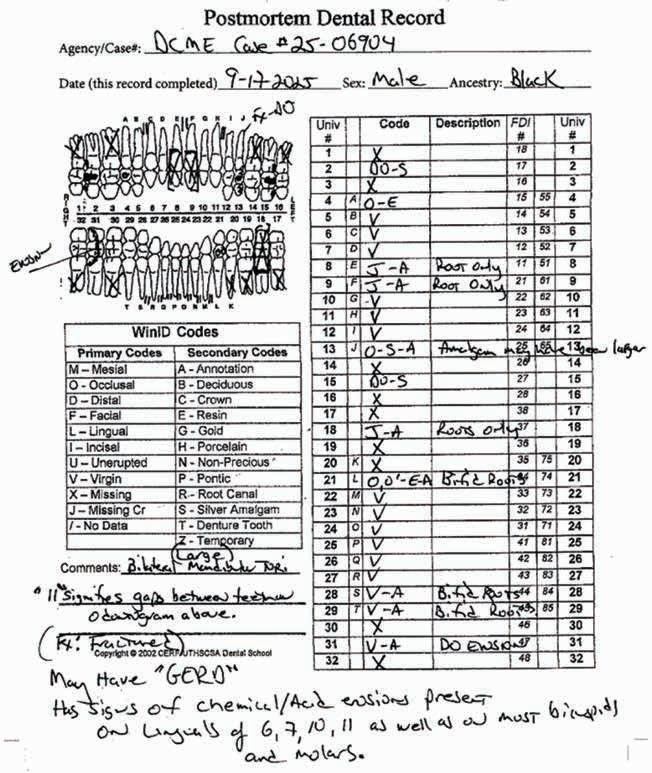 Postmortem Dental Record
Agency/Case#: DCME Case #25-06904
Date (this record completed) 9-17-2025 Sex: Male Ancestry: Black
Fx-DO
A B C D E F G H I J
RIGHT
LEFT
1 2 3 4 5 6 7 8 9 10 11 12 13 14 15 16
32 31 30 29 28 27 26 25 24 23 22 21 20 19 18 17
T S R Q P O N M L K
Univ # Code Description FDI # Univ #
1 X 18 1
2 DO-S 17 2
3 X 16 3
4 A O-E 15 55 4
5 B V 14 54 5
6 C V 13 53 6
7 D V 12 52 7
8 E J-A Root Only 11 51 8
9 F J-A Root Only 21 61 9
10 G V 22 62 10
11 H V 23 63 11
12 I V 24 64 12
13 J O-S-A Amalgam may have been larger 25 65 13
14 X 26 14
15 DO-S 27 15
16 X 28 16
17 X 38 17
18 J-A Roots Only 37 18
19 X 36 19
20 K X 35 75 20
21 L O,O'-E-A Bifid Roots 74 21
22 M V 33 73 22
23 N V 32 72 23
24 O V 31 71 24
25 P V 41 81 25
26 Q V 42 82 26
27 R V 43 83 27
28 S V-A Bifid Roots 44 84 28
29 T V-A Bifid Roots 45 85 29
30 X 46 30
31 V-A DO Erosion 47 31
32 X 48 32
WinID Codes
Primary Codes Secondary Codes
M – Mesial A - Annotation
O – Occlusal B - Deciduous
D – Distal C - Crown
F – Facial E - Resin
L – Lingual G - Gold
I – Incisal H - Porcelain
U – Unerupted N - Non-Precious
V – Virgin P - Pontic
X – Missing R - Root Canal
J – Missing Cr S - Silver Amalgam
/ - No Data T - Denture Tooth
Z - Temporary
(Large)
Comments: Bilateral Mandibular Tori
"11" signifies gaps between teeth on
Odontogram above.
(Fx: Fractured)
Copyright © 2002 CERF/UTHSCSA Dental School
May Have "GERD"
Has signs of chemical/Acid erosions present
on Linguals of 6, 7, 10, 11 as well as on most bicuspids
and molars.